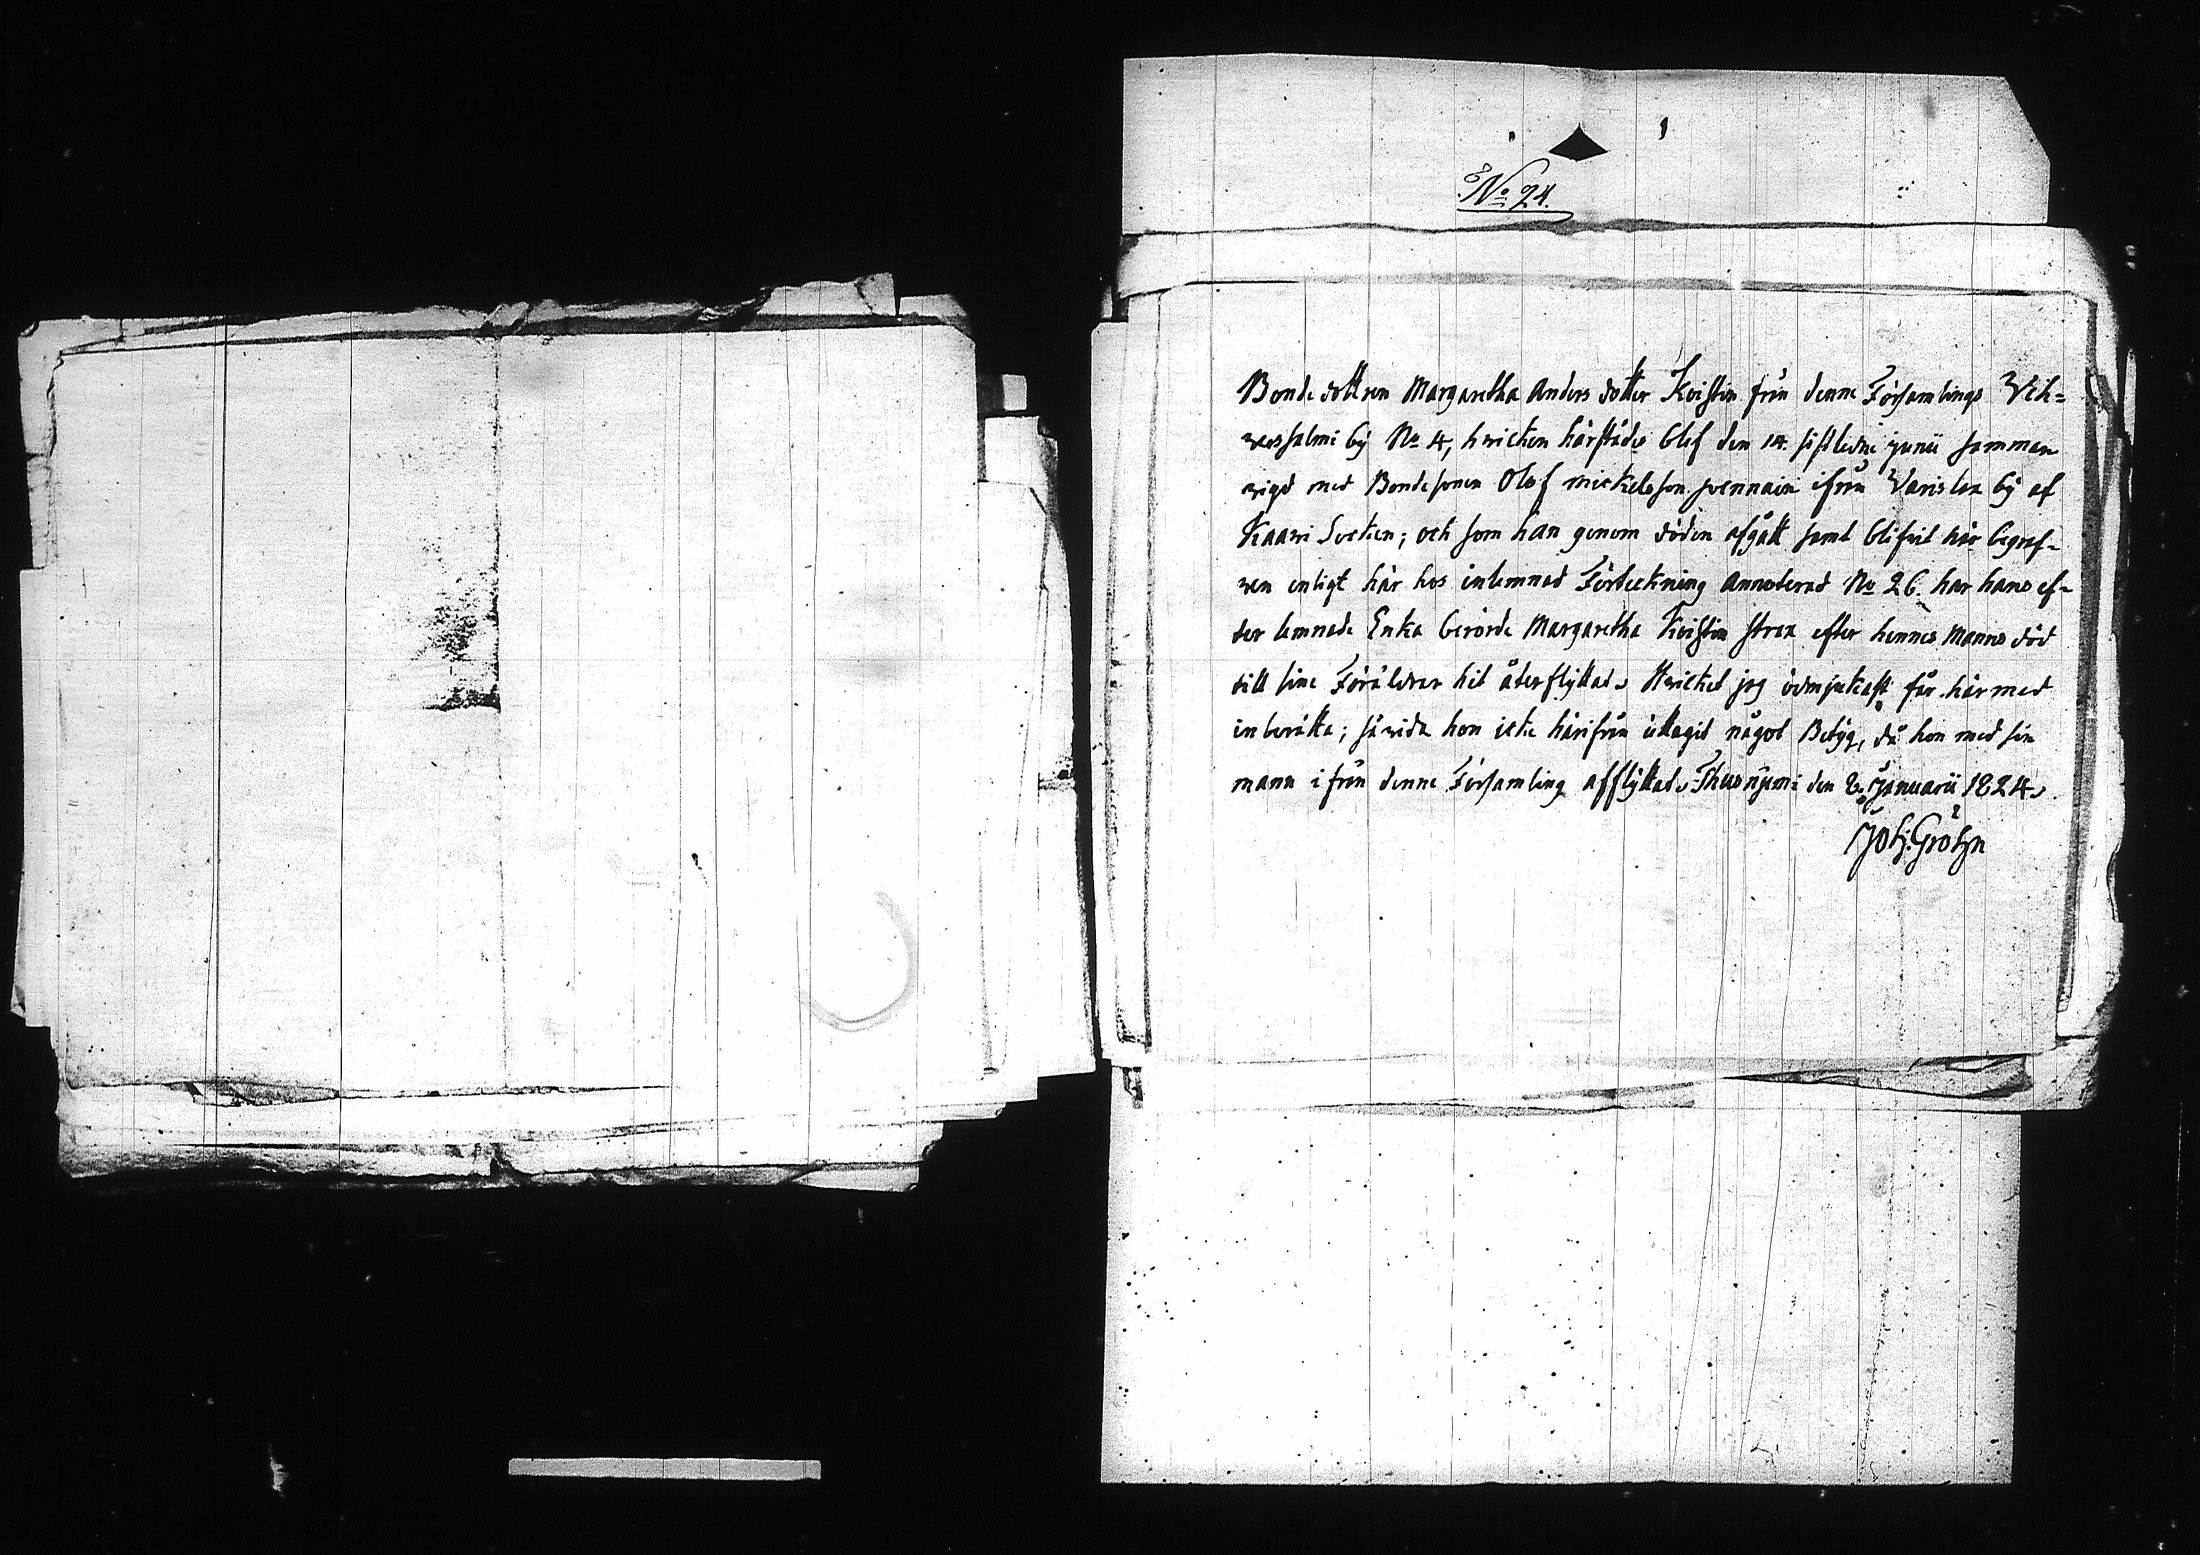 No 24.
Bonde dottren Margaretha Anders dotter Koistin från denne Församlings Veh=
wersalmi bÿ No 4, hwicken härstädes blef den 14. sistledne junii samman
wigd med Bondesonen Olof Mickelsson ifrån Varislax bÿ af
Kaawi Socken; och som han genom döden afgått samt blifvit här begraf-
wen enligt här hos inlemnad Förteckning annoterad No 26. har hans ef-
ter lemnade Enka berörde Margaretha Koistin strax efter hennes manns död
till sine Föräldrar hit återflÿttat. Hwicket jag ödmjukast får härmed
inberätta; såvida hon icke härifrån uttagit något Betÿg, då hon med sin
mann ifrån denne Församling afflÿttat. Thusnjemi den 2. Januarii 1824.
Joh: Gröhn